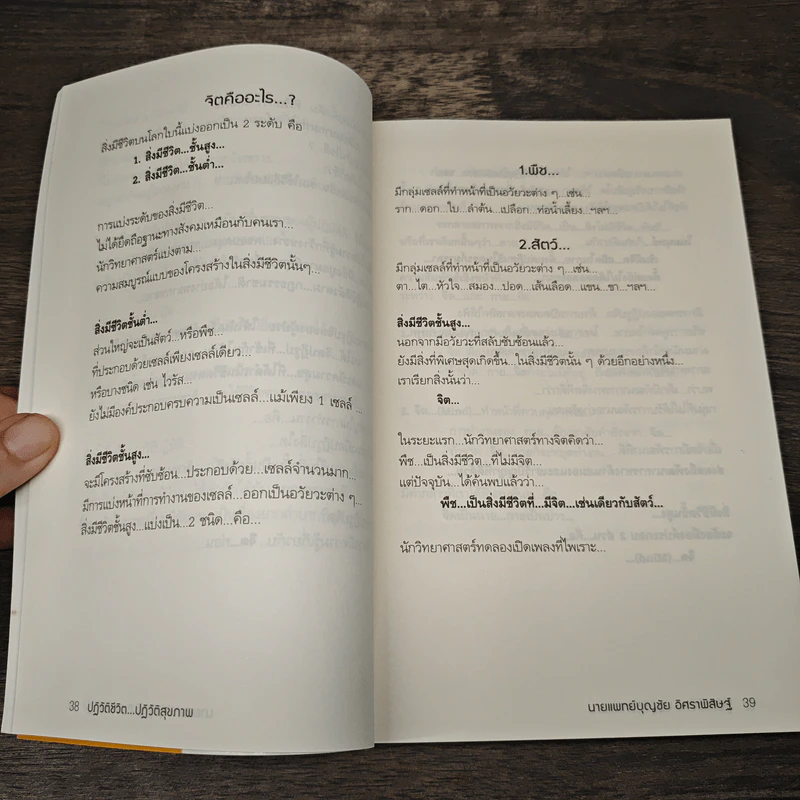 จิตคืออะไร...?
สิ่งมีชีวิตบนโลกใบนี้แบ่งออกเป็น 2 ระดับ คือ
1. สิ่งมีชีวิต...ชั้นสูง...
2. สิ่งมีชีวิต...ชั้นต่ำ...
การแบ่งระดับของสิ่งมีชีวิต...
ไม่ได้ยึดถือฐานะทางสังคมเหมือนกับคนเรา...
นักวิทยาศาสตร์แบ่งตาม...
ความสมบูรณ์แบบของโครงสร้างในสิ่งมีชีวิตนั้นๆ...
สิ่งมีชีวิตชั้นต่ำ...
ส่วนใหญ่จะเป็นสัตว์...หรือพืช...
ที่ประกอบด้วยเซลล์เพียงเซลล์เดียว...
หรือบางชนิด เช่น ไวรัส...
ยังไม่มีองค์ประกอบครบความเป็นเซลล์...แม้เพียง 1 เซลล์ ...
สิ่งมีชีวิตชั้นสูง...
จะมีโครงสร้างที่ซับซ้อน...ประกอบด้วย...เซลล์จำนวนมาก...
มีการแบ่งหน้าที่การทำงานของเซลล์...ออกเป็นอวัยวะต่าง ๆ...
สิ่งมีชีวิตชั้นสูง...แบ่งเป็น...2 ชนิด...คือ...
38 ปฏิวัติชีวิต...ปฏิวัติสุขภาพ
1.พืช...
มีกลุ่มเซลล์ที่ทำหน้าที่เป็นอวัยวะต่าง ๆ...เช่น...
ราก...ดอก...ใบ...ลำต้น...เปลือก...ท่อน้ำเลี้ยง...ฯลฯ...
2.สัตว์...
มีกลุ่มเซลล์ที่ทำหน้าที่เป็นอวัยวะต่าง ๆ...เช่น...
ตา...ไต...หัวใจ...สมอง...ปอด...เส้นเลือด...แขน...ขา...ฯลฯ...
สิ่งมีชีวิตชั้นสูง...
นอกจากมีอวัยวะที่สลับซับซ้อนแล้ว...
ยังมีสิ่งที่พิเศษสุดเกิดขึ้น...ในสิ่งมีชีวิตนั้น ๆ ด้วยอีกอย่างหนึ่ง...
เราเรียกสิ่งนั้นว่า...
จิต...
ในระยะแรก...นักวิทยาศาสตร์ทางจิตคิดว่า...
พืช...เป็นสิ่งมีชีวิต...ที่ไม่มีจิต...
แต่ปัจจุบัน...ได้ค้นพบแล้วว่า...
พืช...เป็นสิ่งมีชีวิตที่...มีจิต...เช่นเดียวกับสัตว์...
นักวิทยาศาสตร์ทดลองเปิดเพลงที่ไพเราะ...
นายแพทย์บุญชัย อิศราพิสิษฐ์ 39